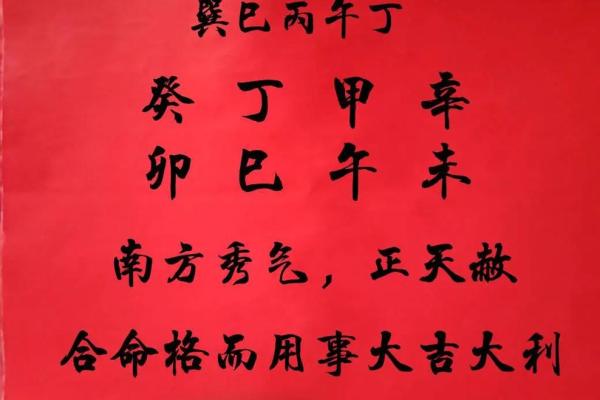 巽巳丙午丁
癸丁甲辛
卯巳午未
南方秀气，正天赦
合命格而用事大吉大利